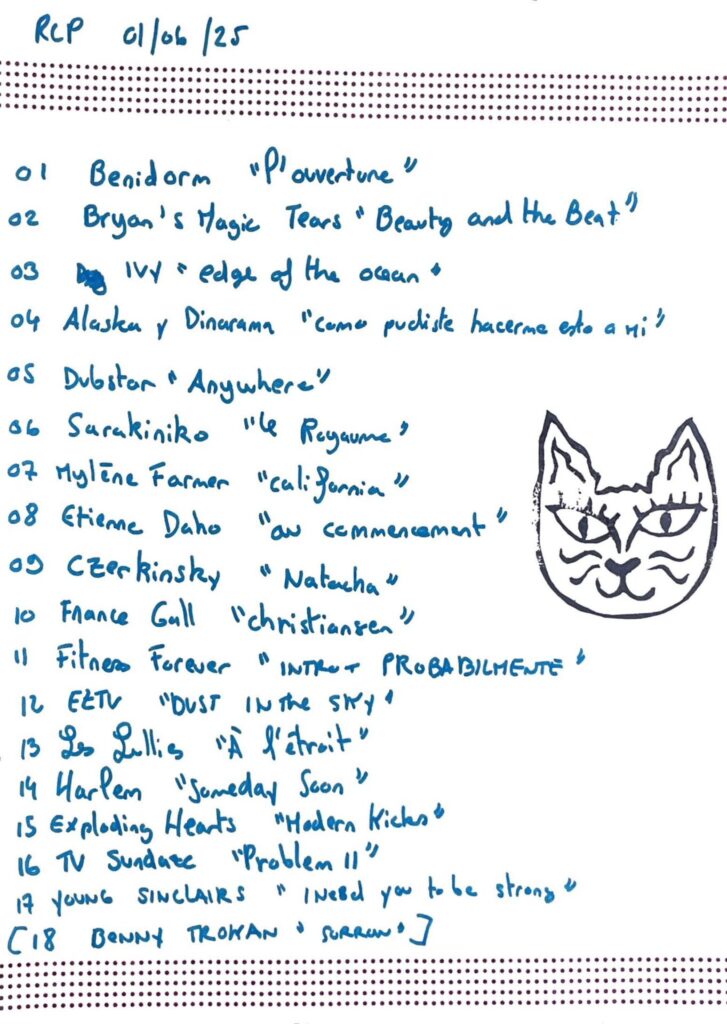 RCP 01/06/25
01 Benidorm "P'ouverture"
02 Bryan's Magic Tears "Beauty and the Beat"
03 IVY "edge of the ocean"
04 Alaska y Dinarama "como pudiste hacerme esto a mi"
05 Dubstar "Anywhere"
06 Sarakiniko "le Royaume"
07 Mylène Farmer "california"
08 Etienne Daho "au commencement"
09 Czerkinsky "Natacha"
10 France Gall "christiansen"
11 Fitness Forever "INTRO + PROBABILMENTE"
12 EZTV "DUST IN the SKY"
13 Les Lullies "À l'étroit"
14 Harlem "Someday Soon"
15 Exploding Hearts "Modern Kicks"
16 TV Sundaze "Problem 11"
17 YOUNG SINCLAIRS "I Need you to be strong"
[18 BENNY TROKAN "SORROW"]